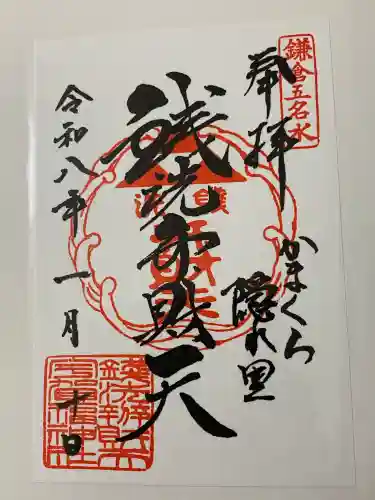 鎌倉五名水
奉拝
かまくら
隠れ里
銭洗弁財天
令和八年一月十日